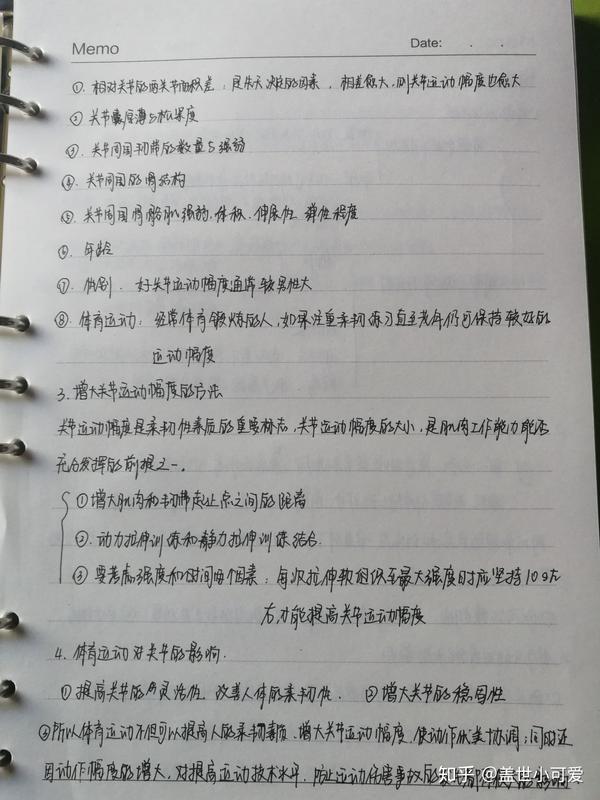 Memo Date: . .
①. 相对关节的两关节面积差：是先天决定的因素，相差愈大，则关节运动幅度也愈大
② 关节囊厚薄与松紧度
③. 关节周围韧带的数量与强弱
④. 关节周围的骨结构
⑤. 关节周围骨骼肌强弱、体积、伸展性 弹性程度
⑥. 年龄
⑦. 性别. 女子关节运动幅度通常较男性大
⑧. 体育运动：经常体育锻炼的人，如果注重柔韧练习直至老年仍可保持较好的
运动幅度
3. 增大关节运动幅度的方法
关节运动幅度是柔韧性素质的重要标志，关节运动幅度的大小，是肌肉工作能力能否
充分发挥的前提之一。
①增大肌肉和韧带起止点之间的距离
②. 动力拉伸训练和静力拉伸训练结合.
③ 要考虑强度和时间两个因素：每次拉伸软组织至最大强度时应坚持10s左
右，才能提高关节运动幅度
4. 体育运动对关节的影响.
①提高关节的灵活性 改善人体的柔韧性. ②增大关节的稳固性
③所以体育运动不但可以提高人的柔韧素质、增大关节运动幅度，使动作优美协调；同时还
因动作幅度的增大，对提高运动技术水平，防止运动伤害事故的
知乎 @盖世小可爱